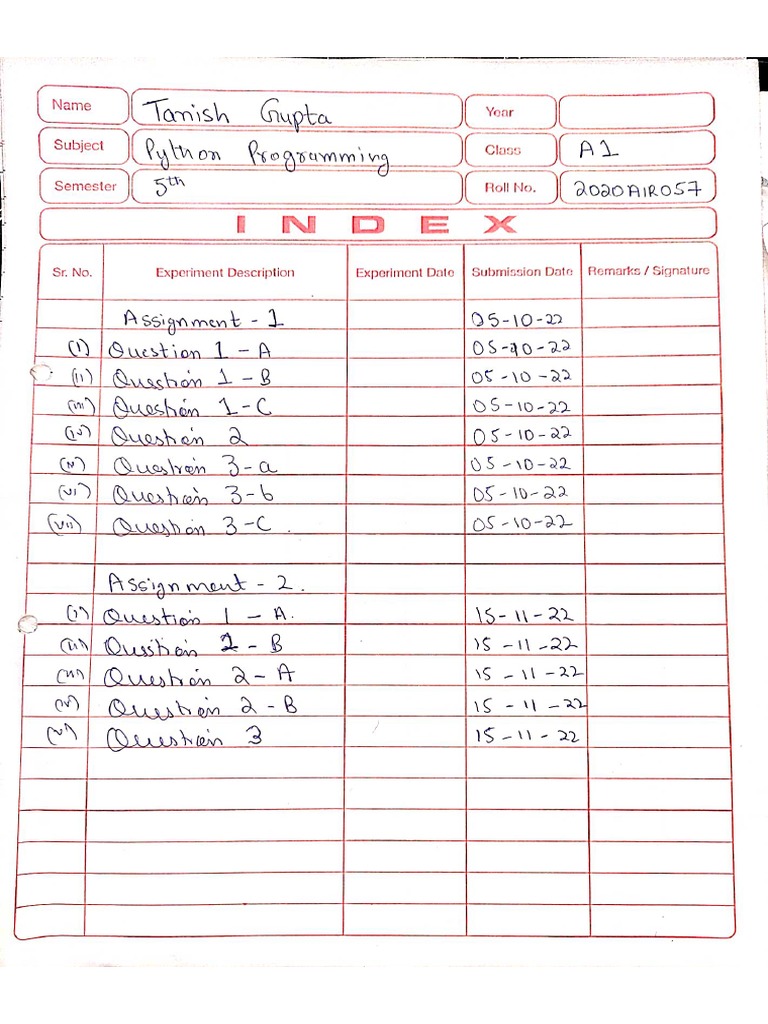 Name Tanish Gupta Year
Subject Python Programming Class A1
Semester 5th Roll No. 2020AIR057
INDEX
Sr. No. Experiment Description Experiment Date Submission Date Remarks / Signature
Assignment - 1 05-10-22
(i) Question 1 - A 05-10-22
(ii) Question 1 - B 05-10-22
(iii) Question 1-C 05-10-22
(iv) Question 2 05-10-22
(v) Question 3-a 05-10-22
(vi) Question 3-b 05-10-22
(vii) Question 3-C. 05-10-22
Assignment - 2.
(i) Question 1 - A. 15-11-22
(ii) Question 1 - B 15-11-22
(iii) Question 2-A 15-11-22
(iv) Question 2-B 15-11-22
(v) Question 3 15-11-22